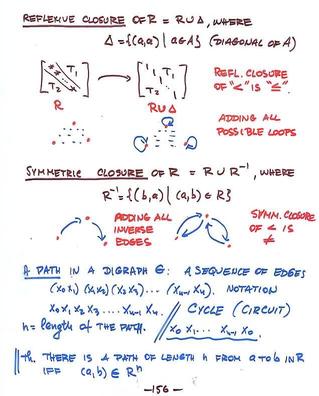 REFLEXIVE CLOSURE OF R = R ∪ Δ, WHERE
Δ = {(a,a) | a∈A} (DIAGONAL OF A)
T₁ T₂ → 1 1 T₁ T₂ 1 1
R R∪Δ
REFL. CLOSURE
OF "<" IS "≤".
ADDING ALL
POSSIBLE LOOPS
SYMMETRIC CLOSURE OF R = R ∪ R⁻¹, WHERE
R⁻¹ = {(b,a) | (a,b) ∈ R}
ADDING ALL
INVERSE
EDGES
SYMM. CLOSURE
OF < IS
≠
A PATH IN A DIGRAPH G: A SEQUENCE OF EDGES
(x₀x₁) (x₁x₂) (x₂x₃)... (xₙ₋₁xₙ). NOTATION
x₀x₁x₂x₃... xₙ₋₁xₙ. // CYCLE (CIRCUIT)
n = length OF THE PATH. // x₀x₁... xₙ₋₁x₀.
Th. THERE IS A PATH OF LENGTH n FROM a TO b IN R
IFF (a,b) ∈ Rⁿ
—156—